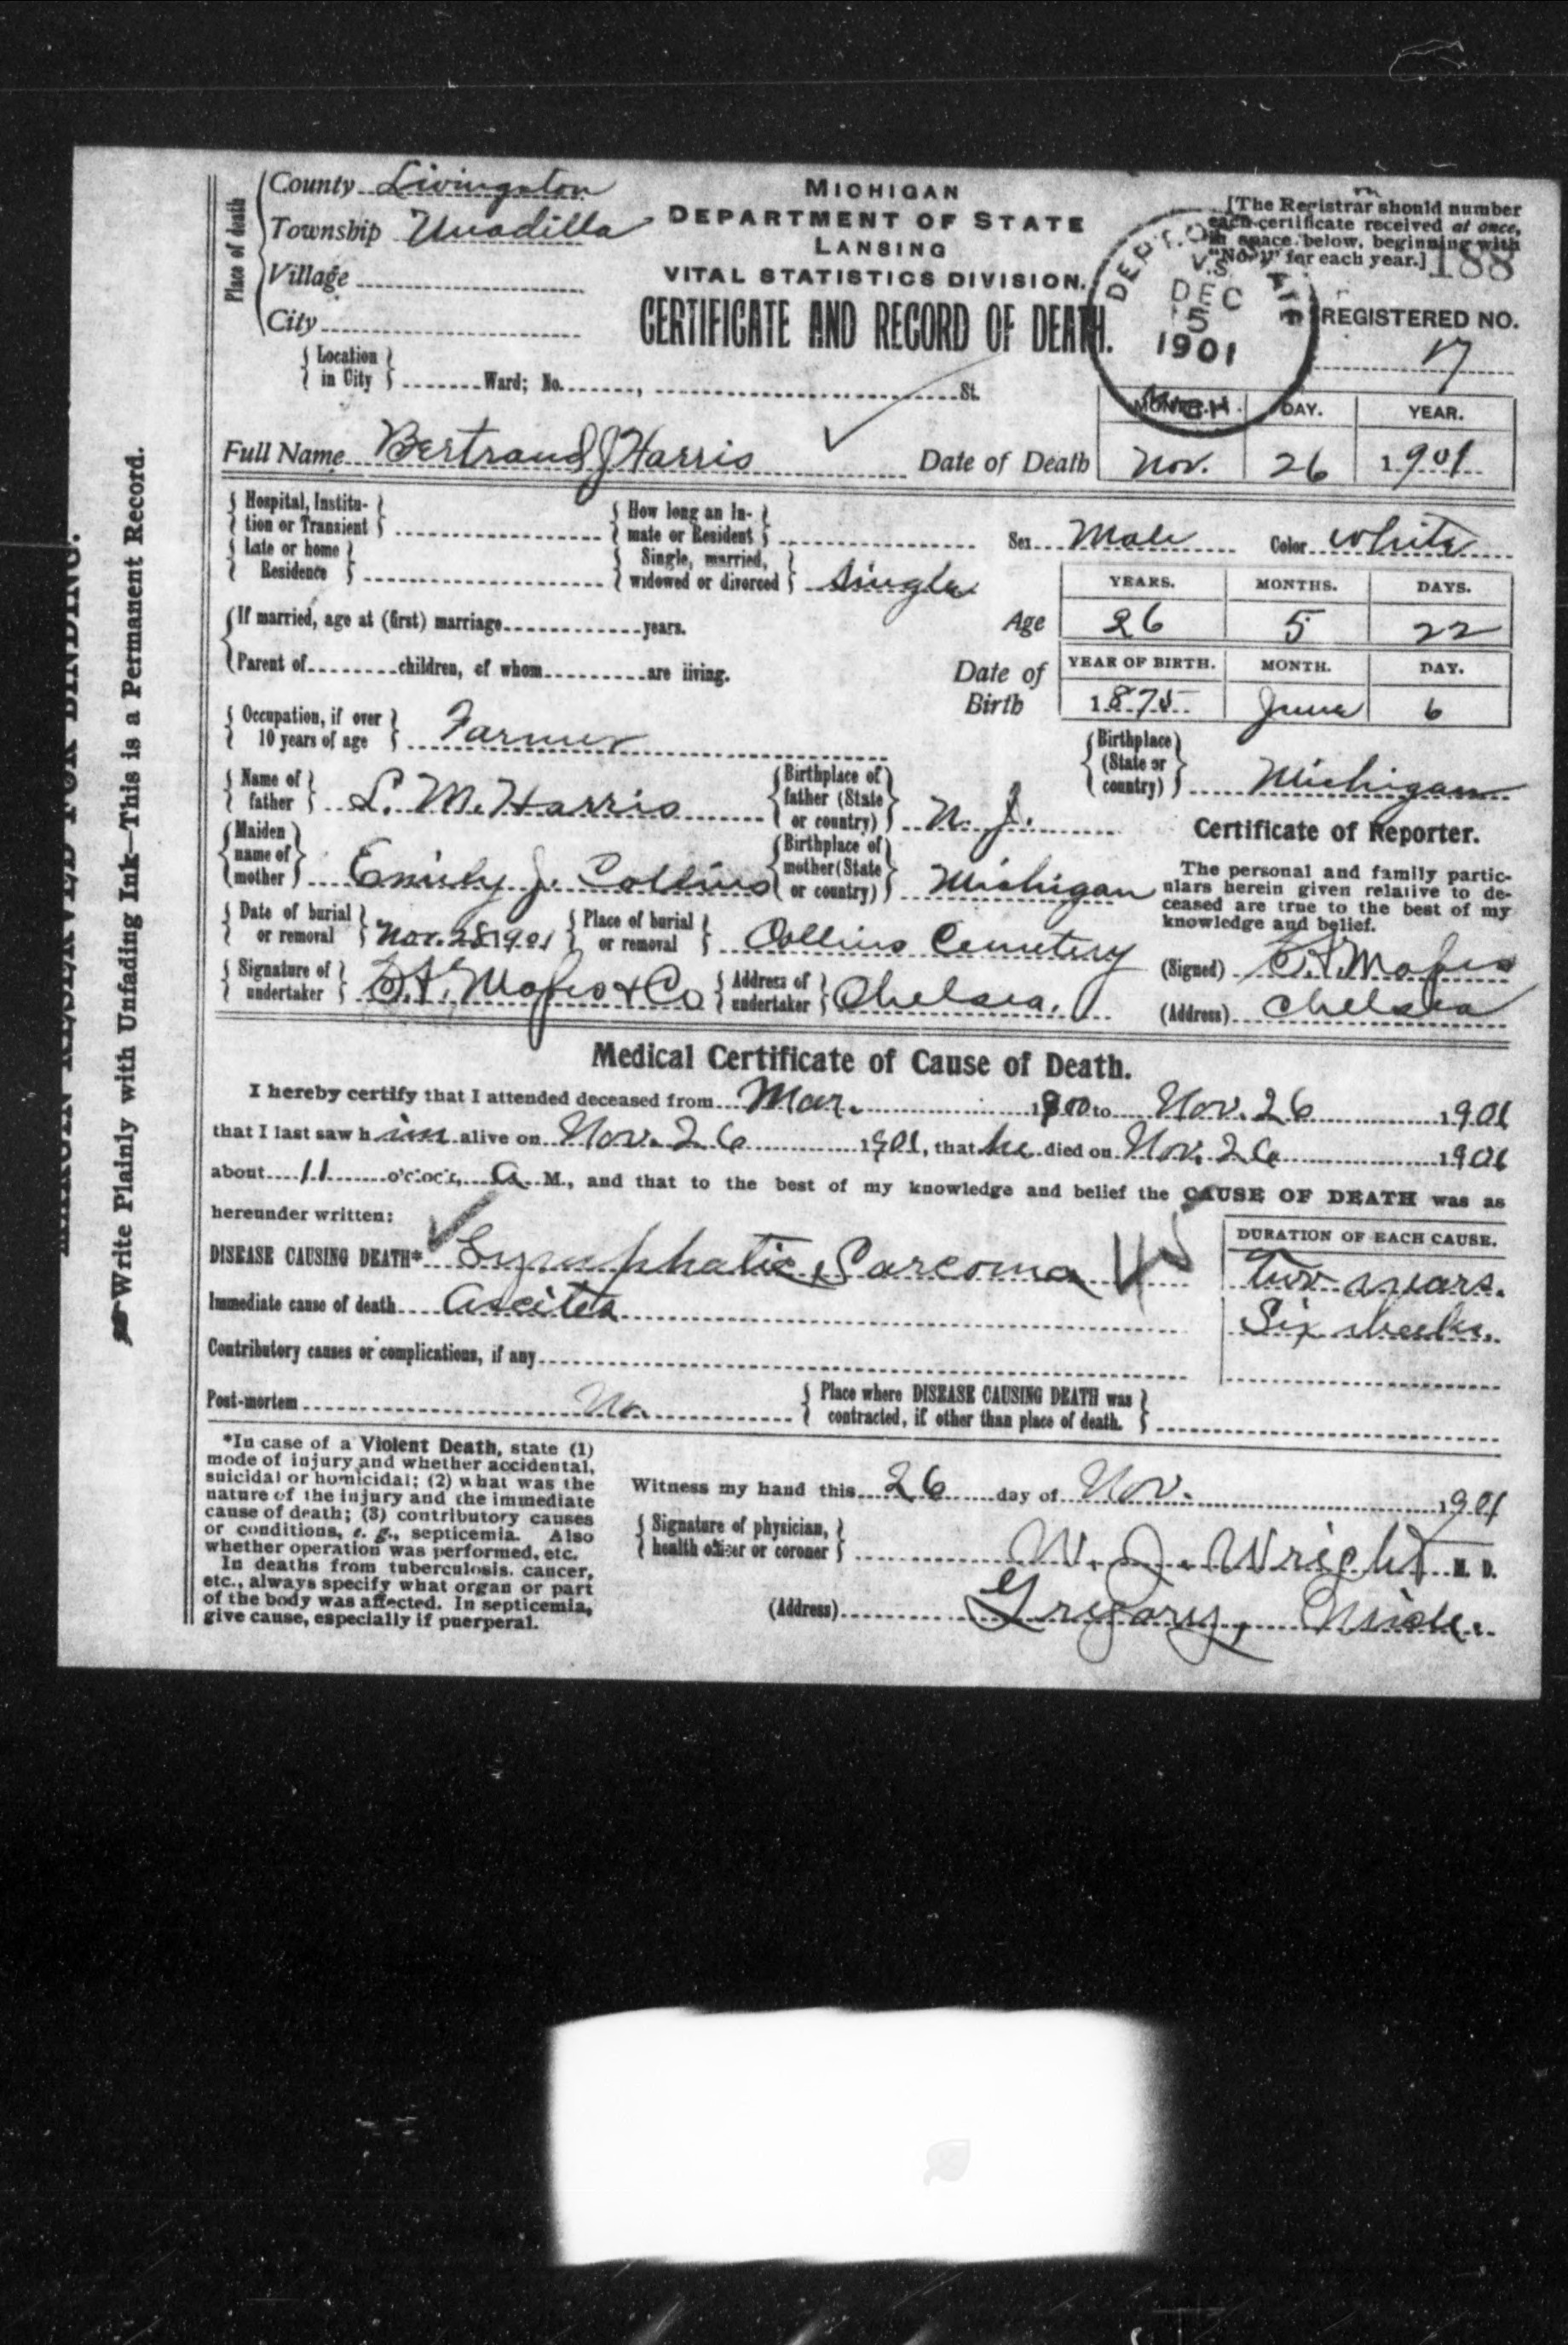 Place of death
County Livingston
Township Unadilla
Village
City
Location in City Ward; No. , St.
MICHIGAN
DEPARTMENT OF STATE
LANSING
VITAL STATISTICS DIVISION.
CERTIFICATE AND RECORD OF DEATH.
DEC
5
1901
MICH
[The Registrar should number
each certificate received at once,
in space below, beginning with
"No. 1" for each year.] 188
REGISTERED NO.
17
MONTH. DAY. YEAR.
Full Name Bertrand J Harris Date of Death Nov. 26 1901
Hospital, Institution or Transient How long an Inmate or Resident Sex Male Color White
Late or home Residence Single, married, widowed or divorced Single
YEARS. MONTHS. DAYS.
If married, age at (first) marriage years. Age 26 5 22
Parent of children, of whom are living.
YEAR OF BIRTH. MONTH. DAY.
Date of Birth 1875 June 6
Occupation, if over 10 years of age Farmer
Birthplace (State or country) Michigan
Name of father L. M. Harris Birthplace of father (State or country) N. J.
Maiden name of mother Emily J. Collins Birthplace of mother (State or country) Michigan
Date of burial or removal Nov. 28 1901 Place of burial or removal Collins Cemetery
Signature of undertaker Mapes & Co Address of undertaker Chelsea.
Certificate of Reporter.
The personal and family partic-
ulars herein given relative to de-
ceased are true to the best of my
knowledge and belief.
(Signed) Mapes
(Address) Chelsea
Medical Certificate of Cause of Death.
I hereby certify that I attended deceased from Mar. 1900 to Nov. 26 1901
that I last saw him alive on Nov. 26 1901, that he died on Nov. 26 1901
about 11 o'clock, A M., and that to the best of my knowledge and belief the CAUSE OF DEATH was as
hereunder written:
DURATION OF EACH CAUSE.
DISEASE CAUSING DEATH* Lymphatic Sarcoma Two years.
Immediate cause of death Ascites Six weeks.
Contributory causes or complications, if any
Post-mortem No. Place where DISEASE CAUSING DEATH was contracted, if other than place of death.
*In case of a Violent Death, state (1)
mode of injury and whether accidental,
suicidal or homicidal; (2) what was the
nature of the injury and the immediate
cause of death; (3) contributory causes
or conditions, e. g., septicemia. Also
whether operation was performed, etc.
In deaths from tuberculosis, cancer,
etc., always specify what organ or part
of the body was affected. In septicemia,
give cause, especially if puerperal.
Witness my hand this 26 day of Nov. 1901
Signature of physician, health officer or coroner W. J. Wright M. D.
(Address) Gregory, Mich.
MARGIN RESERVED FOR BINDING.
Write Plainly with Unfading Ink—This is a Permanent Record.